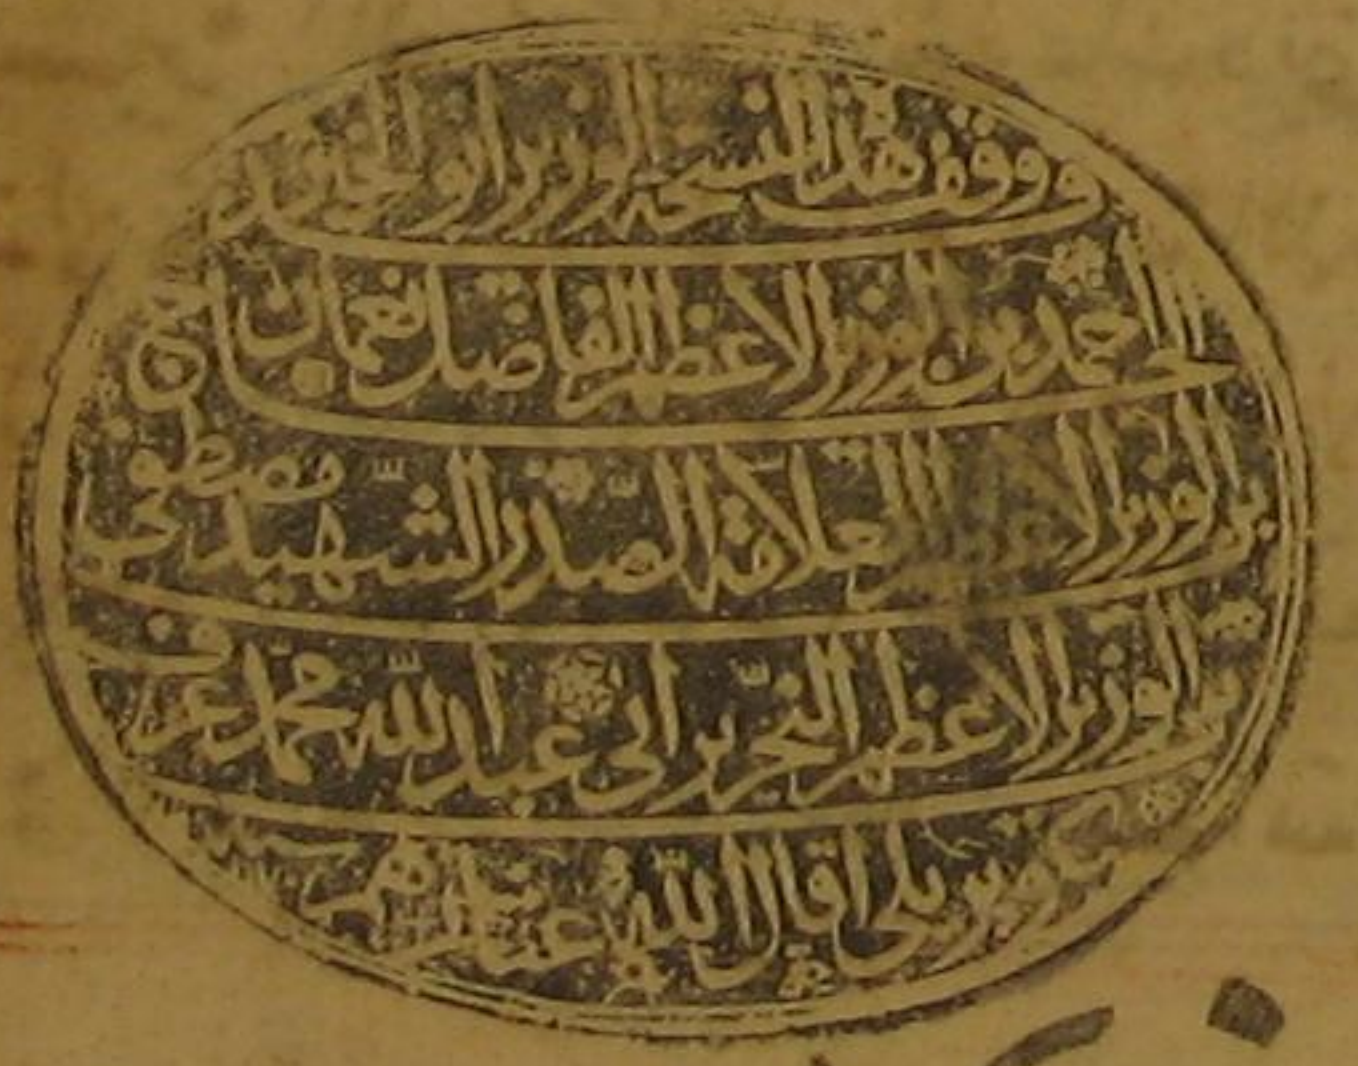 وقف هذا النسخة الوزير ابو الخير
الحاج احمد بن الوزير الاعظم الفاضل نعمان بن
بن الوزير الا العلامة الصدر الشهيد مصطفى
بن الوزير الاعظم النحرير ابى عبد الله محمد عرف
كوپريلى اقال الله عثارهم